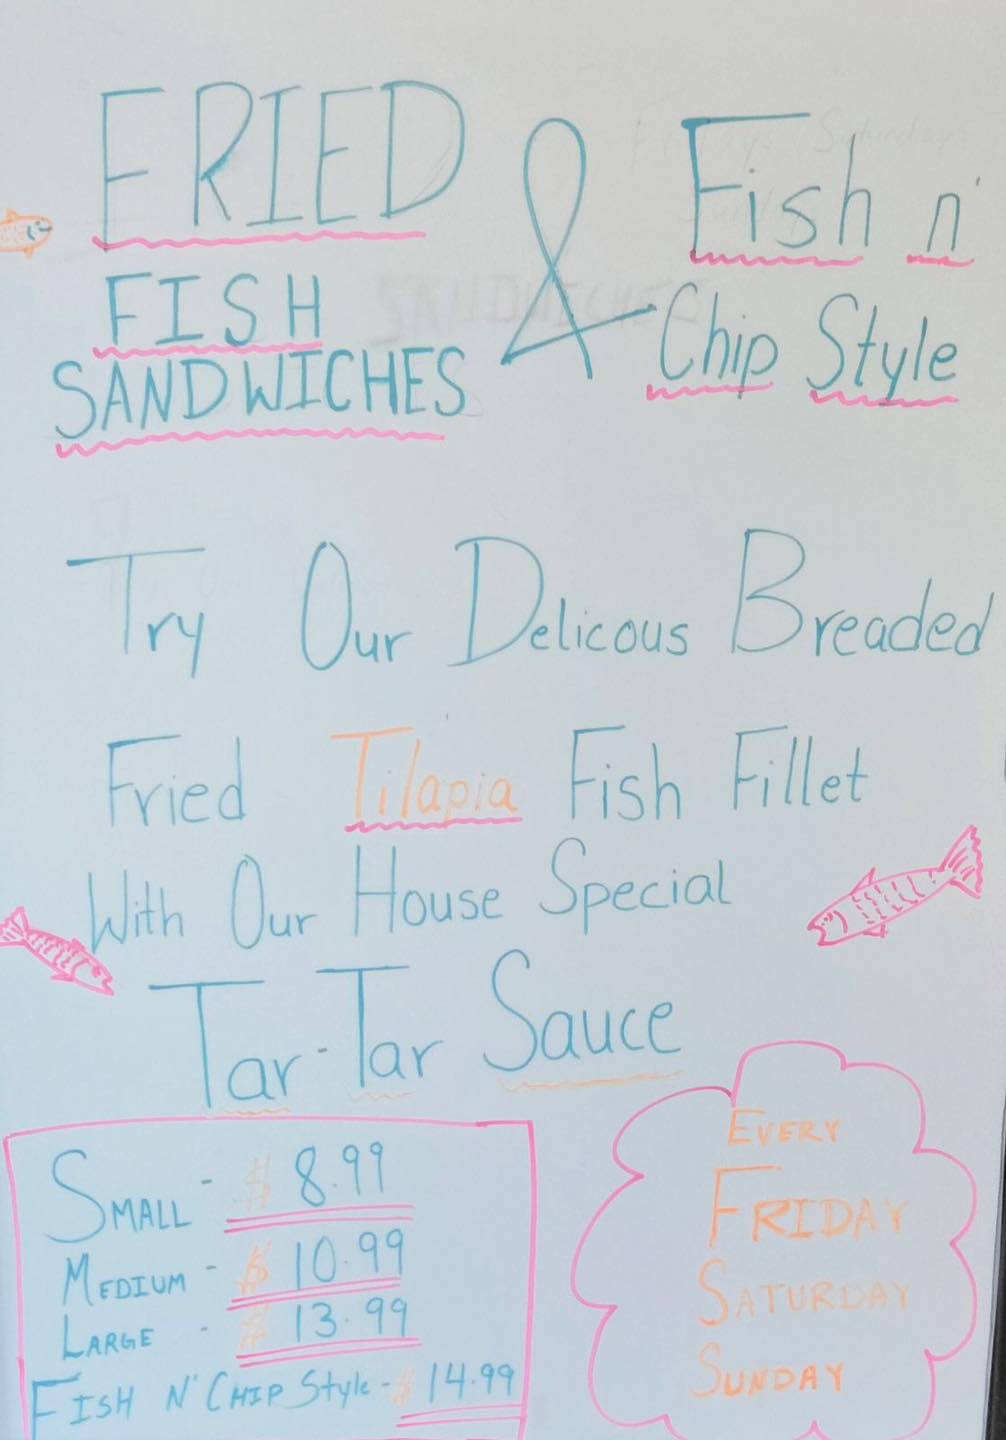 FRIED
FISH
SANDWICHES
&
Fish n'
Chip Style
Try Our Delicous Breaded
Fried Tilapia Fish Fillet
With Our House Special
Tar-Tar Sauce
SMALL - $ 8.99
MEDIUM - $ 10.99
LARGE - $ 13.99
FISH N' CHIP Style - $ 14.99
EVERY
FRIDAY
SATURDAY
SUNDAY